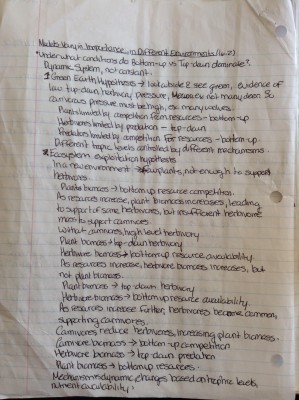 Models Vary in Importance in Different Environments (6-2)
*Under what conditions do Bottom-up vs Top-down dominate?
Dynamic System, not constant.
1 Green Earth Hypothesis → look outside & see green, evidence of
low top-down herbivory pressure, not many deer. So
carnivorous pressure must be high, ex. many wolves.
Plants limited by competition from resources - bottom-up
Herbivores limited by predation - top-down
Predators limited by competition for resources - bottom-up
Different trophic levels controlled by different mechanisms.
2 Ecosystem exploitation hypothesis
In a new environment → few plants, not enough to support
herbivores
Plants biomass → bottom up resource competition.
As resources increase, plant biomass increases, leading
to support of some herbivores, but insufficient herbivore
mass to support carnivores.
Without carnivores, high level herbivory
Plant biomass → top-down herbivory
Herbivore biomass → bottom up resource availability.
As resources increase, herbivore biomass increases, but
not plant biomass.
Plant biomass → top-down herbivory
Herbivore biomass → bottom up resource availability.
As resources increase further, herbivores become common,
supporting carnivores.
Carnivores reduce herbivores, increasing plant biomass.
Carnivore biomass → bottom up competition
Herbivore biomass → top down predation
Plant biomass → bottom up resources.
Mechanism is dynamic, changes based on trophic levels,
nutrient availability.